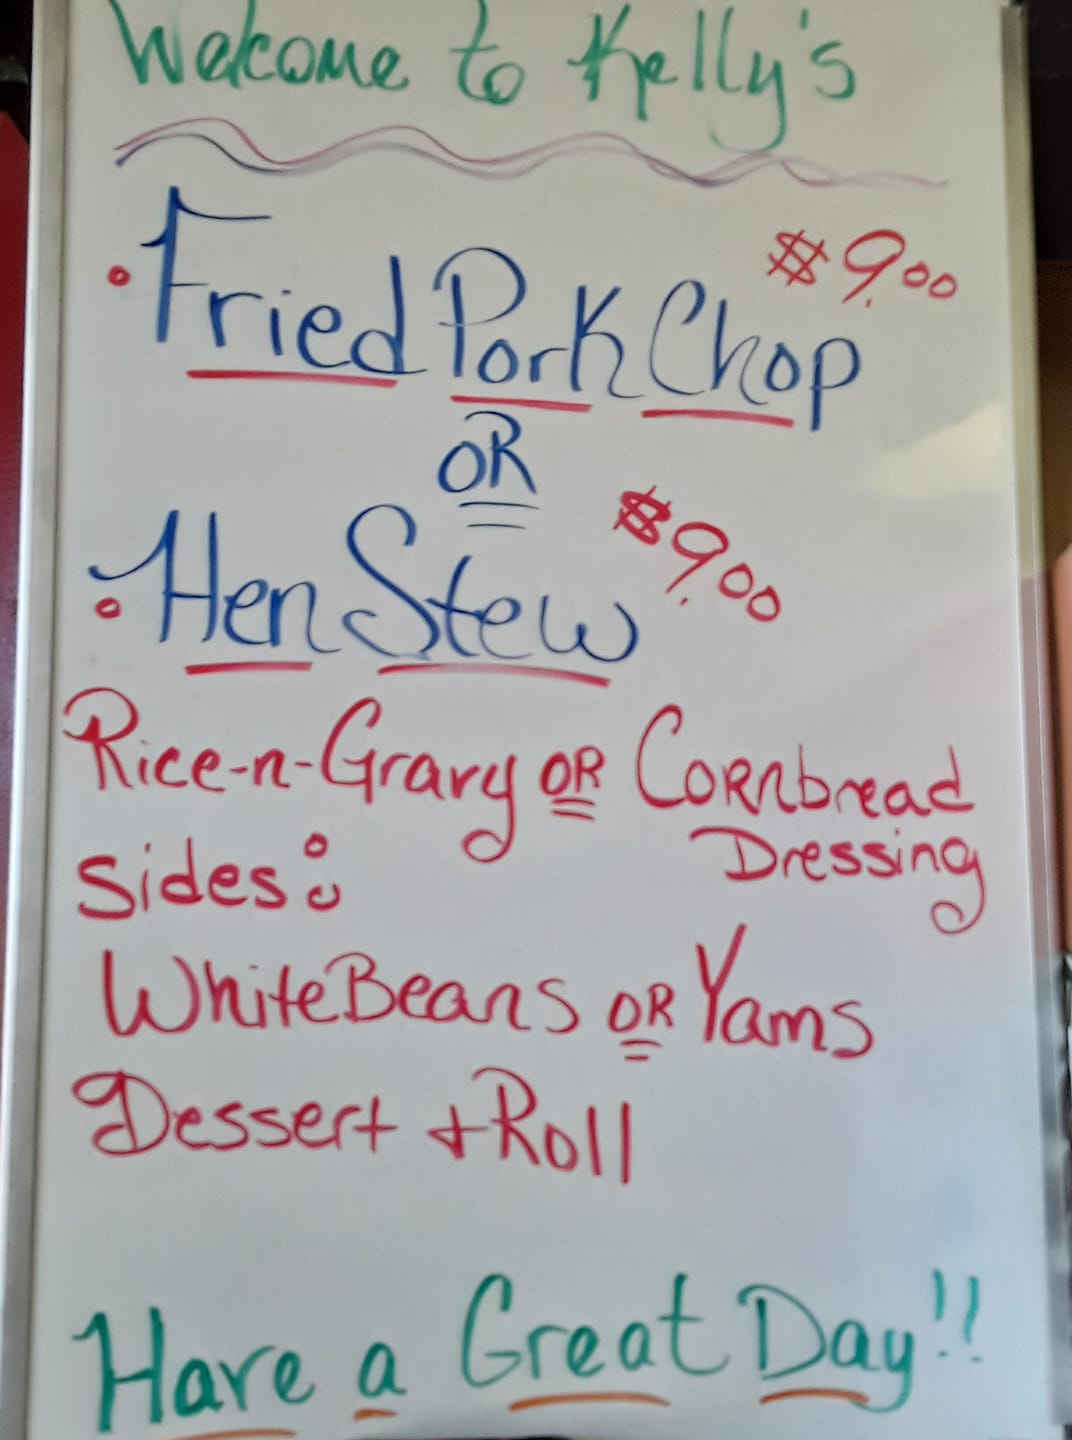 Welcome to Kelly's
$9.00
• Fried Pork Chop
OR
$9.00
• Hen Stew
Rice-n-Gravy OR Cornbread
Dressing
Sides:
White Beans OR Yams
Dessert + Roll
Have a Great Day!!